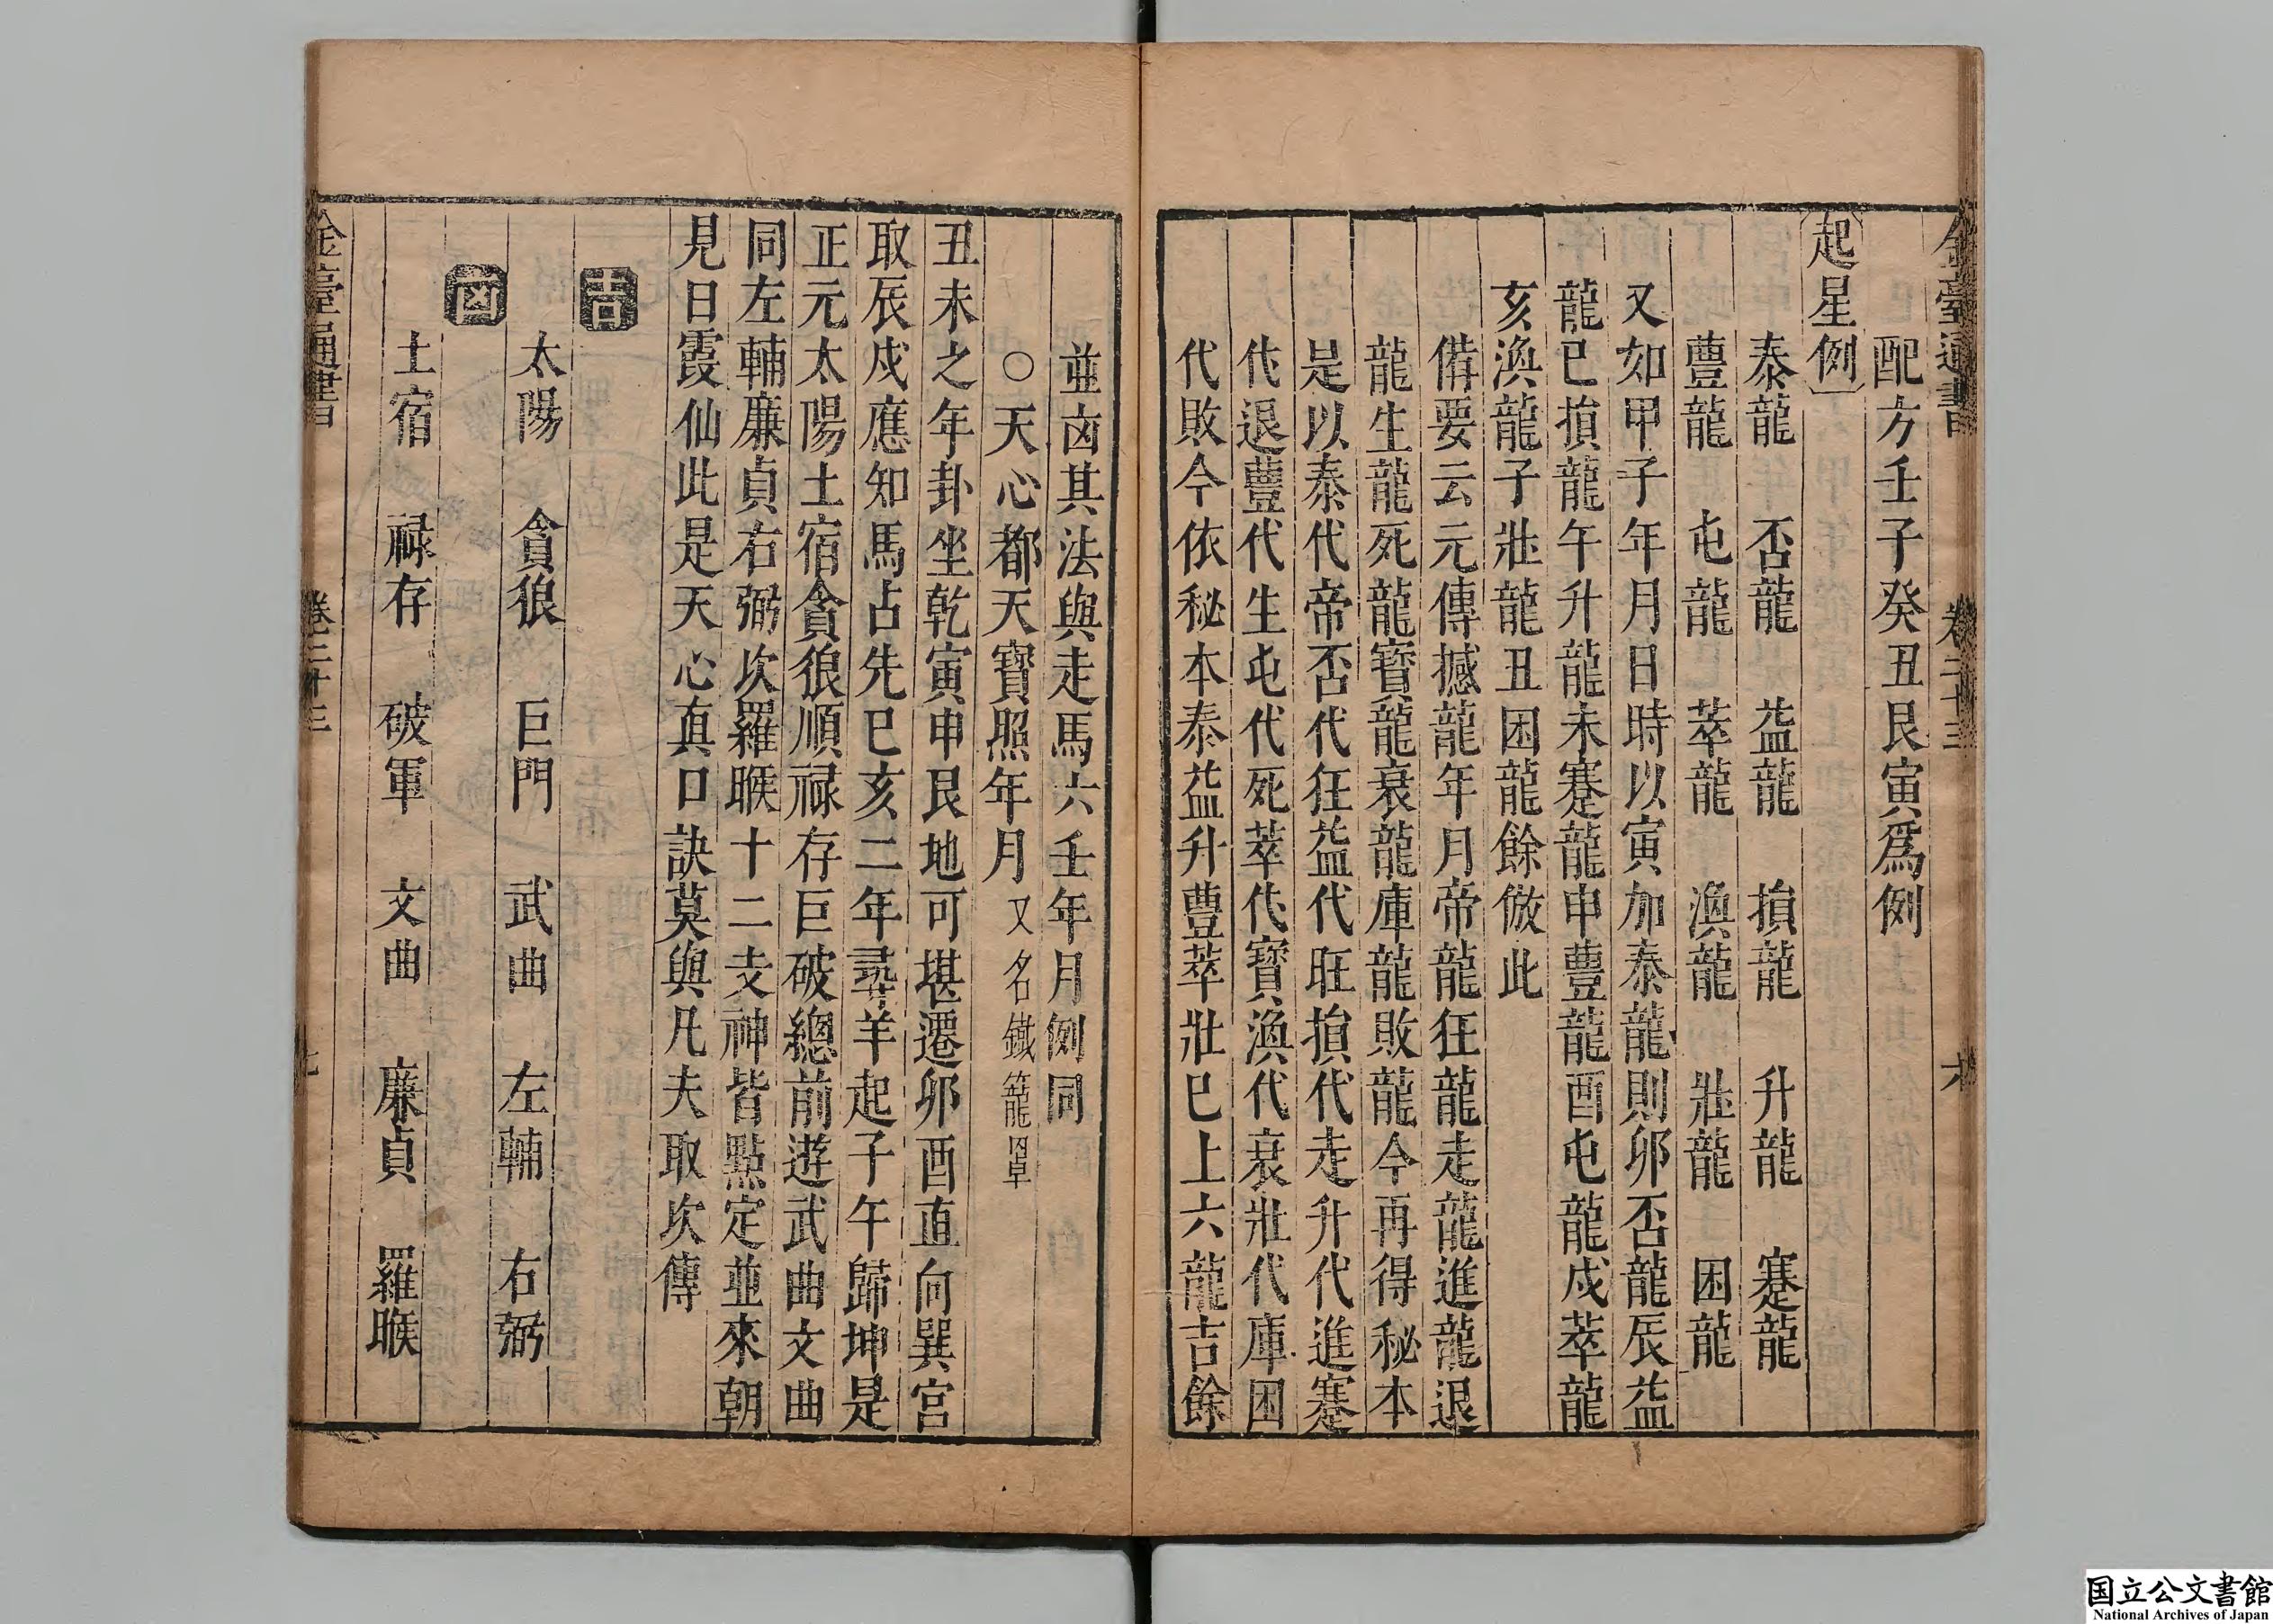 金臺通書 卷二十三 六
配方壬子癸丑艮寅爲例
起星例
泰龍 否龍 益龍 損龍 升龍 蹇龍
豊龍 屯龍 萃龍 渙龍 壯龍 困龍
又如甲子年月日時以寅加泰龍則卯否龍辰益
龍巳損龍午升龍未蹇龍申豊龍酉屯龍戌萃龍
亥渙龍子壯龍丑困龍餘倣此
俻要云元傳撼龍年月帝龍狂龍走龍進龍退
龍生龍死龍寳龍衰龍庫龍敗龍今再得秘本
是以泰代帝否代狂益代旺損代走升代進蹇
代退豊代生屯代死萃代寳渙代衰壯代庫困
代敗今依秘本泰益升豊萃壯巳上六龍吉餘
並凶其法與走馬六壬年月例同
○天心都天寳照年月又名鐵籠罩
丑未之年卦坐乾寅申艮地可堪遷卯酉直向巽宮
取辰戌應知馬占先巳亥二年尋羊起子午歸坤是
正元太陽土宿貪狼順禄存巨破總前遊武曲文曲
同左輔廉貞右弼次羅睺十二支神皆點定並來朝
見日霞仙此是天心真口訣莫與凡夫取次傳
吉
太陽 貪狼 巨門 武曲 左輔 右弼
凶
土宿 禄存 破軍 文曲 廉貞 羅睺
金臺通書 卷二十三 七
国立公文書館
National Archives of Japan